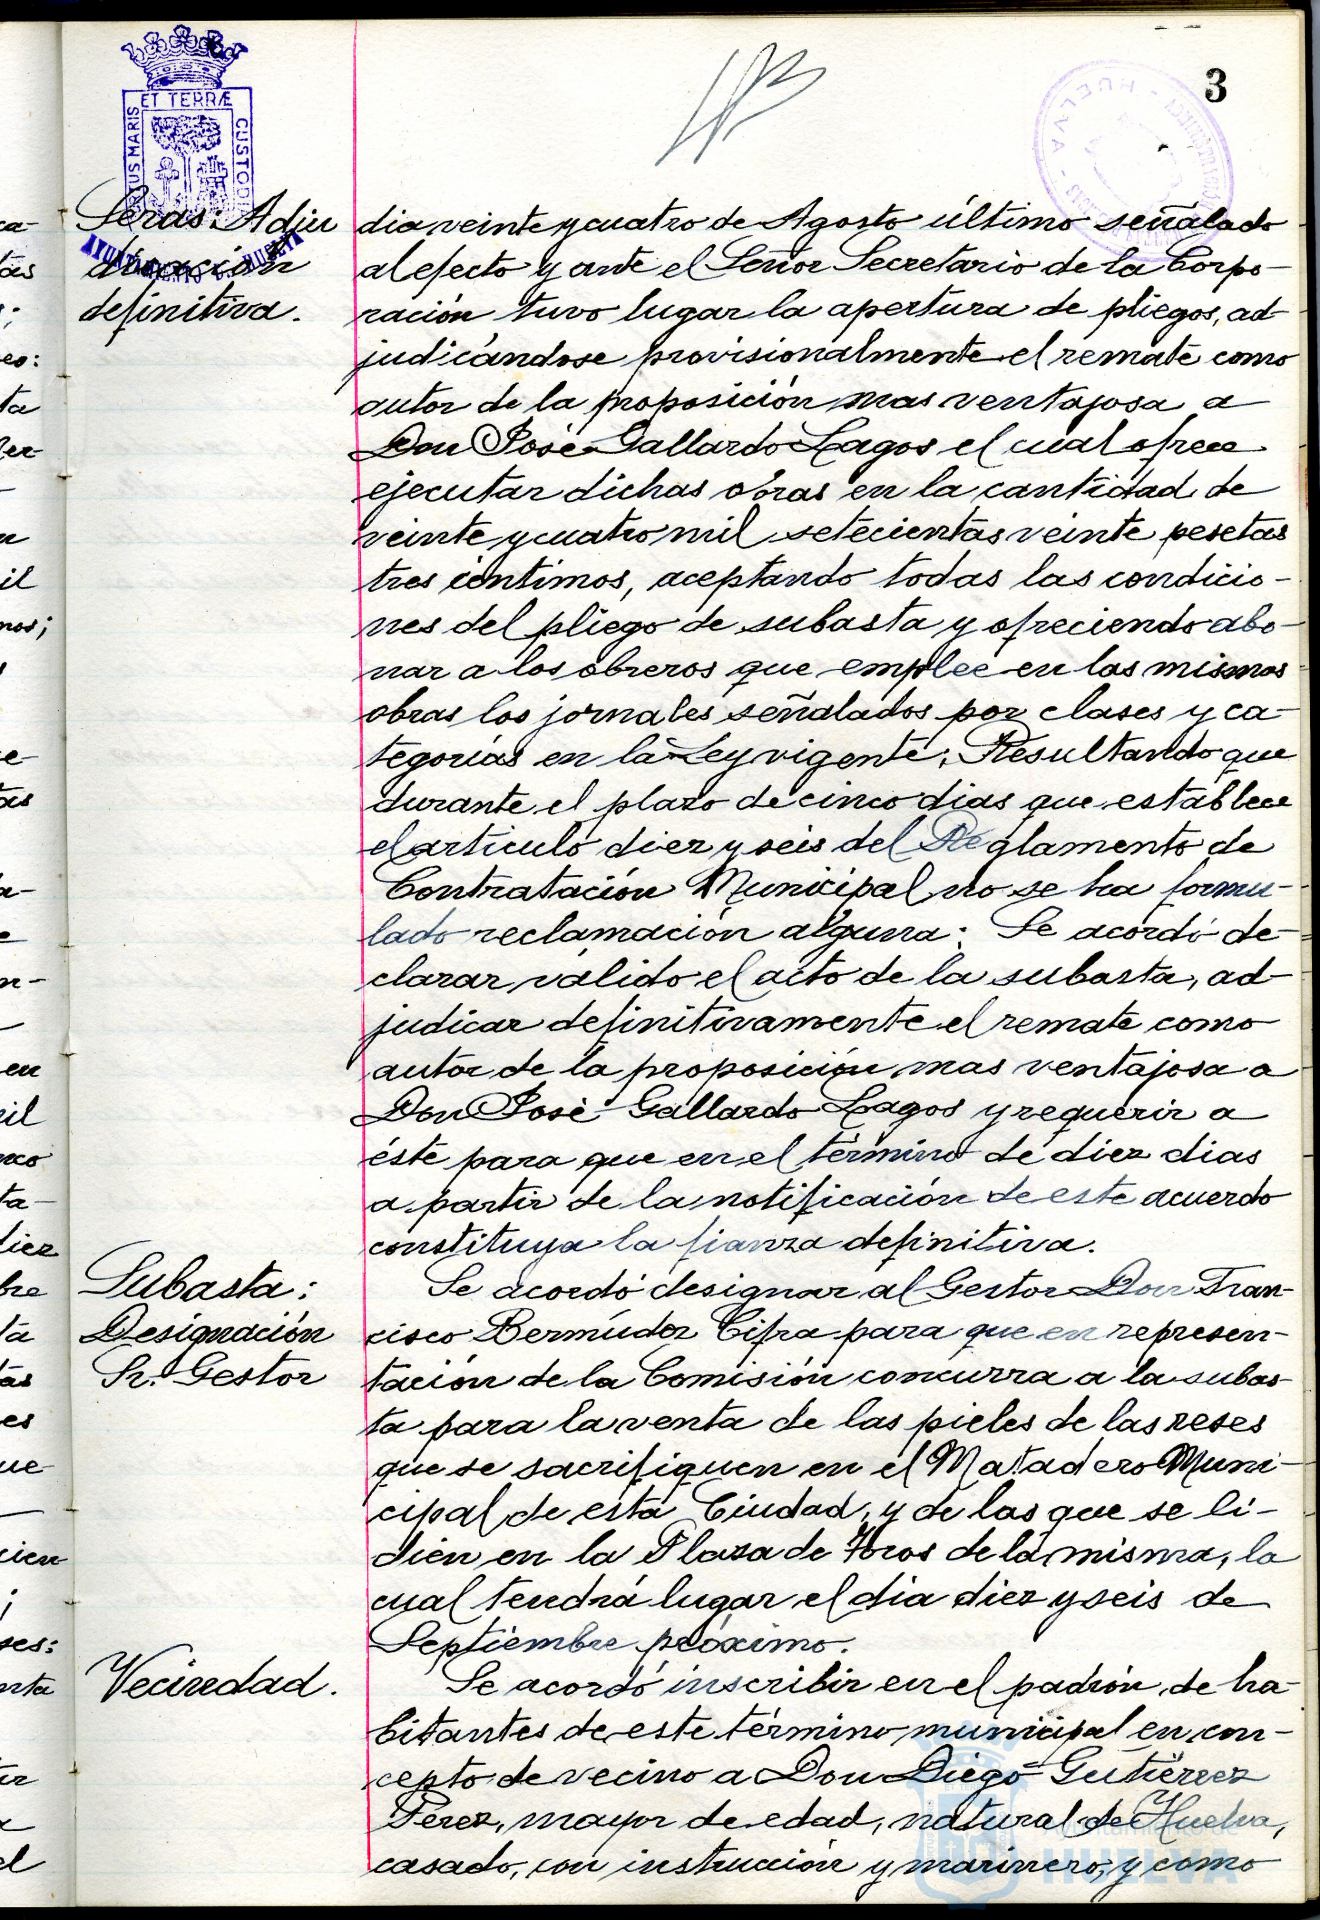 3
ET TERRÆ
US MARIS
CUSTOD
HUELVA
AYUNTAMIENTO DE HUELVA
Seras: Adju
dicación
definitiva.
dia veinte y cuatro de Agosto último señalado
al efecto y ante el Señor Secretario de la Corpo-
ración tuvo lugar la apertura de pliegos, ad-
judicándose provisionalmente el remate como
autor de la proposición mas ventajosa a
Don José Gallardo Lagos el cual ofrece
ejecutar dichas obras en la cantidad de
veinte y cuatro mil setecientas veinte pesetas
tres céntimos, aceptando todas las condicio-
nes del pliego de subasta y ofreciendo abo-
nar a los obreros que emplee en las mismas
obras los jornales señalados por clases y ca-
tegorías en la Ley vigente; Resultando que
durante el plazo de cinco dias que establece
el artículo diez y seis del Reglamento de
Contratación Municipal no se ha formu-
lado reclamación alguna: Se acordó de-
clarar válido el acto de la subasta, ad-
judicar definitivamente el remate como
autor de la proposición mas ventajosa a
Don José Gallardo Lagos y requerir a
éste para que en el término de diez dias
a partir de la notificación de este acuerdo
constituya la fianza definitiva.
Subasta:
Designación
Sr. Gestor
Se acordó designar al Gestor Don Fran-
cisco Bermúdez Cifra para que en represen-
tación de la Comisión concurra a la subas-
ta para la venta de las pieles de las reses
que se sacrifiquen en el Matadero Muni-
cipal de esta Ciudad, y de las que se li-
dien en la Plaza de Toros de la misma, la
cual tendrá lugar el dia diez y seis de
Septiembre próximo.
Vecindad.
Se acordó inscribir en el padrón de ha-
bitantes de este término municipal en con-
cepto de vecino a Don Diego Gutiérrez
Pérez, mayor de edad, natural de Huelva,
casado, con instrucción y marinero; y como
Ayuntamiento de
HUELVA